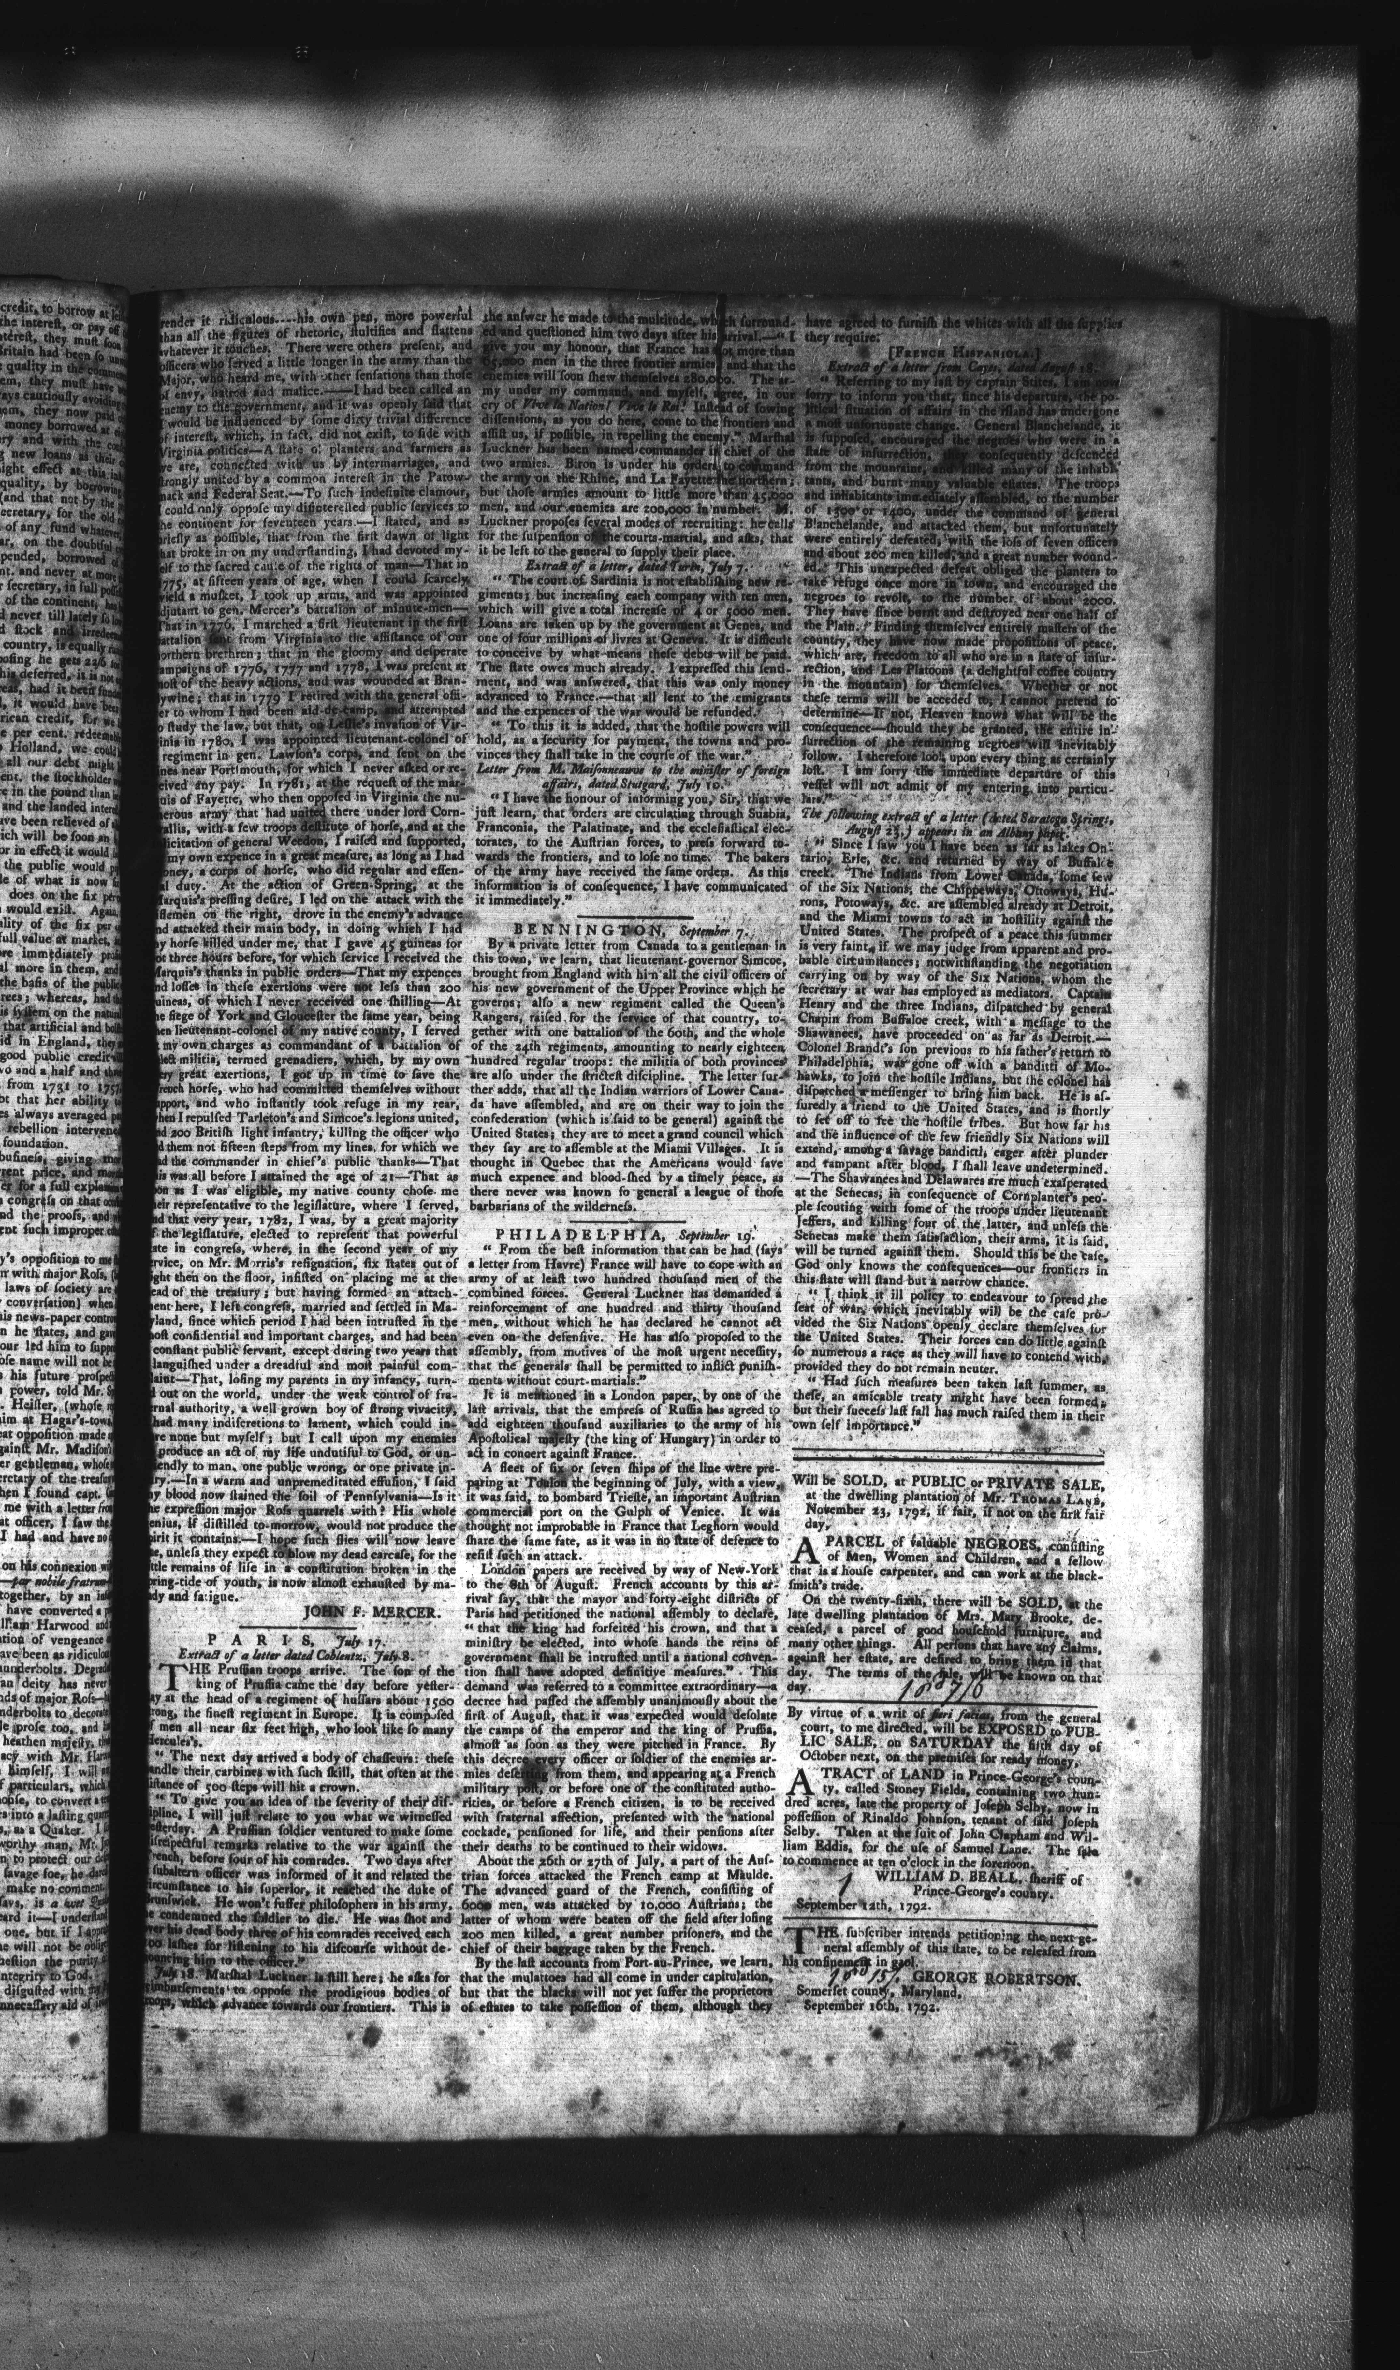 render it ridiculous....his own pen, more powerful
than all the figures of rhetoric, stultifies and flattens
whatever it touches. There were others present, and
officers who served a little longer in the army than the
Major, who heard me, with other sensations than those
of envy, hatred and malice.——I had been called an
enemy to the government, and it was openly said that
I would be influenced by some dirty trivial difference
of interest, which, in fact, did not exist, to side with
Virginia politics—A state of planters and farmers as
we are, connected with us by intermarriages, and
strongly united by a common interest in the Patow-
mack and Federal Seat.—To such indefinite clamour,
I could only oppose my disinterested public services to
the continent for seventeen years.—I stated, and as
briefly as possible, that from the first dawn of light
that broke in on my understanding, I had devoted my-
self to the sacred cause of the rights of man—That in
1775, at fifteen years of age, when I could scarcely
wield a musket, I took up arms, and was appointed
adjutant to gen. Mercer's battalion of minute-men—
That in 1776, I marched a first lieutenant in the first
battalion sent from Virginia to the assistance of our
northern brethren; that in the gloomy and desperate
campaigns of 1776, 1777 and 1778, I was present at
most of the heavy actions, and was wounded at Bran-
dywine; that in 1779 I retired with the general offi-
cer to whom I had been aid-de-camp, and attempted
to study the law, but that, on Leslie's invasion of Vir-
ginia in 1780, I was appointed lieutenant-colonel of
a regiment in gen. Lawson's corps, and sent on the
lines near Portsmouth, for which I never asked or re-
ceived any pay. In 1781, at the request of the mar-
quis of Fayette, who then opposed in Virginia the nu-
merous army that had united there under lord Corn-
wallis, with a few troops destitute of horse, and at the
solicitation of general Weedon, I raised and supported,
at my own expence in a great measure, as long as I had
money, a corps of horse, who did regular and essen-
tial duty. At the action of Green-Spring, at the
Marquis's pressing desire, I led on the attack with the
riflemen on the right, drove in the enemy's advance
and attacked their main body, in doing which I had
my horse killed under me, that I gave 45 guineas for
not three hours before, for which service I received the
Marquis's thanks in public orders—That my expences
and losses in these exertions were not less than 200
guineas, of which I never received one shilling—At
the siege of York and Gloucester the same year, being
then lieutenant-colonel of my native county, I served
at my own charges as commandant of a battalion of
select militia, termed grenadiers, which, by my own
very great exertions, I got up in time to save the
French horse, who had committed themselves without
support, and who instantly took refuge in my rear,
when I repulsed Tarleton's and Simcoe's legions united,
and 200 British light infantry, killing the officer who
led them not fifteen steps from my lines, for which we
had the commander in chief's public thanks—That
this was all before I attained the age of 21—That as
soon as I was eligible, my native county chose me
their representative to the legislature, where I served,
and that very year, 1782, I was, by a great majority
of the legislature, elected to represent that powerful
state in congress, where, in the second year of my
service, on Mr. Morris's resignation, six states out of
eight then on the floor, insisted on placing me at the
head of the treasury; but having formed an attach-
ment here, I left congress, married and settled in Ma-
ryland, since which period I had been intrusted in the
most confidential and important charges, and had been
a constant public servant, except during two years that
I languished under a dreadful and most painful com-
plaint—That, losing my parents in my infancy, turn-
ed out on the world, under the weak control of fra-
ternal authority, a well grown boy of strong vivacity,
I had many indiscretions to lament, which could in-
jure none but myself; but I call upon my enemies
to produce an act of my life undutiful to God, or un-
friendly to man, one public wrong, or one private in-
jury.—In a warm and unpremeditated effusion, I said
my blood now stained the soil of Pennsylvania—Is it
the expression major Ross quarrels with? His whole
genius, if distilled to-morrow, would not produce the
spirit it contains.—I hope such flies will now leave
me, unless they expect to blow my dead carcase, for the
little remains of life in a constitution broken in the
spring-tide of youth, is now almost exhausted by ma-
lady and fatigue.
JOHN F. MERCER.
PARIS, July 17.
Extract of a letter dated Coblentz, July 8.
THE Prussian troops arrive. The son of the
king of Prussia came the day before yester-
day at the head of a regiment of hussars about 1500
strong, the finest regiment in Europe. It is composed
of men all near six feet high, who look like so many
Hercules's.
" The next day arrived a body of chasseurs: these
handle their carbines with such skill, that often at the
distance of 500 steps will hit a crown.
" To give you an idea of the severity of their dis-
cipline, I will just relate to you what we witnessed
yesterday. A Prussian soldier ventured to make some
disrespectful remarks relative to the war against the
French, before four of his comrades. Two days after
a subaltern officer was informed of it and related the
circumstance to his superior, it reached the duke of
Brunswick. He won't suffer philosophers in his army,
he condemned the soldier to die. He was shot and
over his dead body three of his comrades received each
200 lashes for listening to his discourse without de-
nouncing him to the officer."
July 18. Marshal Luckner is still here; he asks for
reimbursements to oppose the prodigious bodies of
troops, which advance towards our frontiers. This is
the answer he made to the multitude, which surround-
ed and questioned him two days after his arrival.—" I
give you my honour, that France has not more than
men in the three frontier armies, and that the
enemies will soon shew themselves 280,000. The ar-
my under my command, and myself, agree, in our
cry of Vive la Nation! Vive le Roi! Instead of sowing
dissensions, as you do here, come to the frontiers and
assist us, if possible, in repelling the enemy." Marshal
Luckner has been named commander in chief of the
two armies. Biron is under his orders to command
the army on the Rhine, and La Fayette the northern;
but those armies amount to little more than 45,000
men, and our enemies are 200,000 in number. M.
Luckner proposes several modes of recruiting: he calls
for the suspension of the courts-martial, and asks, that
it be left to the general to supply their place.
Extract of a letter, dated Turin, July 7.
" The court of Sardinia is not establishing new re-
giments; but increasing each company with ten men,
which will give a total increase of 4 or 5000 men.
Loans are taken up by the government at Genes, and
one of four millions of livres at Geneva. It is difficult
to conceive by what means these debts will be paid.
The state owes much already. I expressed this senti-
ment, and was answered, that this was only money
advanced to France.—that all lent to the emigrants
and the expences of the war would be refunded.
" To this it is added, that the hostile powers will
hold, as a security for payment, the towns and pro-
vinces they shall take in the course of the war."
Letter from M. Maisonneuve to the minister of foreign
affairs, dated Stutgard, July 10.
" I have the honour of informing you, Sir, that we
just learn, that orders are circulating through Suabia,
Franconia, the Palatinate, and the ecclesiastical elec-
torates, to the Austrian forces, to press forward to-
wards the frontiers, and to lose no time. The bakers
of the army have received the same orders. As this
information is of consequence, I have communicated
it immediately."
BENNINGTON, September 7.
By a private letter from Canada to a gentleman in
this town, we learn, that lieutenant-governor Simcoe,
brought from England with him all the civil officers of
his new government of the Upper Province which he
governs; also a new regiment called the Queen's
Rangers, raised for the service of that country, to-
gether with one battalion of the 60th, and the whole
of the 24th regiments, amounting to nearly eighteen
hundred regular troops: the militia of both provinces
are also under the strictest discipline. The letter fur-
ther adds, that all the Indian warriors of Lower Cana-
da have assembled, and are on their way to join the
confederation (which is said to be general) against the
United States; they are to meet a grand council which
they say are to assemble at the Miami Villages. It is
thought in Quebec that the Americans would save
much expence and blood-shed by a timely peace, as
there never was known so general a league of those
barbarians of the wilderness.
PHILADELPHIA, September 19.
" From the best information that can be had (says
a letter from Havre) France will have to cope with an
army of at least two hundred thousand men of the
combined forces. General Luckner has demanded a
reinforcement of one hundred and thirty thousand
men, without which he has declared he cannot act
even on the defensive. He has also proposed to the
assembly, from motives of the most urgent necessity,
that the generals shall be permitted to inflict punish-
ments without court-martials."
It is mentioned in a London paper, by one of the
last arrivals, that the empress of Russia has agreed to
add eighteen thousand auxiliaries to the army of his
Apostolical majesty (the king of Hungary) in order to
act in concert against France.
A fleet of six or seven ships of the line were pre-
paring at Toulon the beginning of July, with a view,
it was said, to bombard Trieste, an important Austrian
commercial port on the Gulph of Venice. It was
thought not improbable in France that Leghorn would
share the same fate, as it was in no state of defence to
resist such an attack.
London papers are received by way of New-York
to the 8th of August. French accounts by this ar-
rival say, that the mayor and forty-eight districts of
Paris had petitioned the national assembly to declare,
" that the king had forfeited his crown, and that a
ministry be elected, into whose hands the reins of
government shall be intrusted until a national conven-
tion shall have adopted definitive measures." This
demand was referred to a committee extraordinary—a
decree had passed the assembly unanimously about the
first of August, that it was expected would desolate
the camps of the emperor and the king of Prussia,
almost as soon as they were pitched in France. By
this decree every officer or soldier of the enemies ar-
mies deserting from them, and appearing at a French
military post, or before one of the constituted autho-
rities, or before a French citizen, is to be received
with fraternal affection, presented with the national
cockade, pensioned for life, and their pensions after
their deaths to be continued to their widows.
About the 26th or 27th of July, a part of the Aus-
trian forces attacked the French camp at Maulde.
The advanced guard of the French, consisting of
6000 men, was attacked by 10,000 Austrians; the
latter of whom were beaten off the field after losing
200 men killed, a great number prisoners, and the
chief of their baggage taken by the French.
By the last accounts from Port-au-Prince, we learn,
that the mulattoes had all come in under capitulation,
but that the blacks will not yet suffer the proprietors
of estates to take possession of them, although they
have agreed to furnish the whites with all the supplies
they require.
[FRENCH HISPANIOLA.]
Extract of a letter from Cayes, dated August 18.
" Referring to my last by captain Stites, I am now
sorry to inform you that, since his departure, the po-
litical situation of affairs in the island has undergone
a most unfortunate change. General Blanchelande, it
is supposed, encouraged the negroes who were in a
state of insurrection, they consequently descended
from the mountains, and killed many of the inhabi-
tants, and burnt many valuable estates. The troops
and inhabitants immediately assembled, to the number
of 1300 or 1400, under the command of general
Blanchelande, and attacked them, but unfortunately
were entirely defeated, with the loss of seven officers
and about 200 men killed, and a great number wound-
ed. This unexpected defeat obliged the planters to
take refuge once more in town, and encouraged the
negroes to revolt, to the number of about 2000.
They have since burnt and destroyed near one half of
the Plain. Finding themselves entirely masters of the
country, they have now made propositions of peace,
which are, freedom to all who are in a state of insur-
rection, and Les Platoons (a delightful coffee country
in the mountain) for themselves. Whether or not
these terms will be acceded to, I cannot pretend to
determine—If not, Heaven knows what will be the
consequence—should they be granted, the entire in-
surrection of the remaining negroes will inevitably
follow. I therefore look upon every thing as certainly
lost. I am sorry the immediate departure of this
vessel will not admit of my entering into particu-
lars."
The following extract of a letter (dated Saratoga Springs,
August 25,) appears in an Albany paper.
" Since I saw you I have been as far as lakes On-
tario, Erie, &c. and returned by way of Buffaloe
creek. The Indians from Lower Canada, some few
of the Six Nations, the Chippeways, Ottoways, Hu-
rons, Potoways, &c. are assembled already at Detroit,
and the Miami towns to act in hostility against the
United States. The prospect of a peace this summer
is very faint, if we may judge from apparent and pro-
bable circumstances; notwithstanding the negotiation
carrying on by way of the Six Nations, whom the
secretary at war has employed as mediators. Captain
Henry and the three Indians, dispatched by general
Chapin from Buffaloe creek, with a message to the
Shawanees, have proceeded on as far as Detroit.—
Colonel Brandt's son previous to his father's return to
Philadelphia, was gone off with a banditti of Mo-
hawks, to join the hostile Indians, but the colonel has
dispatched a messenger to bring him back. He is as-
suredly a friend to the United States, and is shortly
to set off to see the hostile tribes. But how far his
and the influence of the few friendly Six Nations will
extend, among a savage banditti, eager after plunder
and rampant after blood, I shall leave undetermined.
—The Shawanees and Delawares are much exasperated
at the Senecas, in consequence of Cornplanter's peo-
ple scouting with some of the troops under lieutenant
Jeffers, and killing four of the latter, and unless the
Senecas make them satisfaction, their arms, it is said,
will be turned against them. Should this be the case,
God only knows the consequences—our frontiers in
this state will stand but a narrow chance.
" I think it ill policy to endeavour to spread the
seat of war, which inevitably will be the case pro-
vided the Six Nations openly declare themselves for
the United States. Their forces can do little against
so numerous a race as they will have to contend with,
provided they do not remain neuter.
" Had such measures been taken last summer, as
these, an amicable treaty might have been formed,
but their success last fall has much raised them in their
own self importance."
Will be SOLD, at PUBLIC or PRIVATE SALE,
at the dwelling plantation of Mr. THOMAS LANE,
November 23, 1792, if fair, if not on the first fair
day,
A PARCEL of valuable NEGROES, consisting
of Men, Women and Children, and a fellow
that is a house carpenter, and can work at the black-
smith's trade.
On the twenty-sixth, there will be SOLD, at the
late dwelling plantation of Mrs. Mary Brooke, de-
ceased, a parcel of good household furniture, and
many other things. All persons that have any claims,
against her estate, are desired to bring them in that
day. The terms of the sale, will be known on that
day.
By virtue of a writ of fieri facias, from the general
court, to me directed, will be EXPOSED to PUB-
LIC SALE, on SATURDAY the fifth day of
October next, on the premises for ready money,
A TRACT of LAND in Prince-George's coun-
ty, called Stoney Fields, containing two hun-
dred acres, late the property of Joseph Selby, now in
possession of Rinaldo Johnson, tenant of said Joseph
Selby. Taken at the suit of John Clapham and Wil-
liam Eddis, for the use of Samuel Lane. The sale
to commence at ten o'clock in the forenoon.
1 WILLIAM D. BEALL, sheriff of
Prince-George's county.
September 12th, 1792.
THE subscriber intends petitioning the next ge-
neral assembly of this state, to be released from
his confinement in gaol.
GEORGE ROBERTSON.
Somerset county, Maryland,
September 16th, 1792.